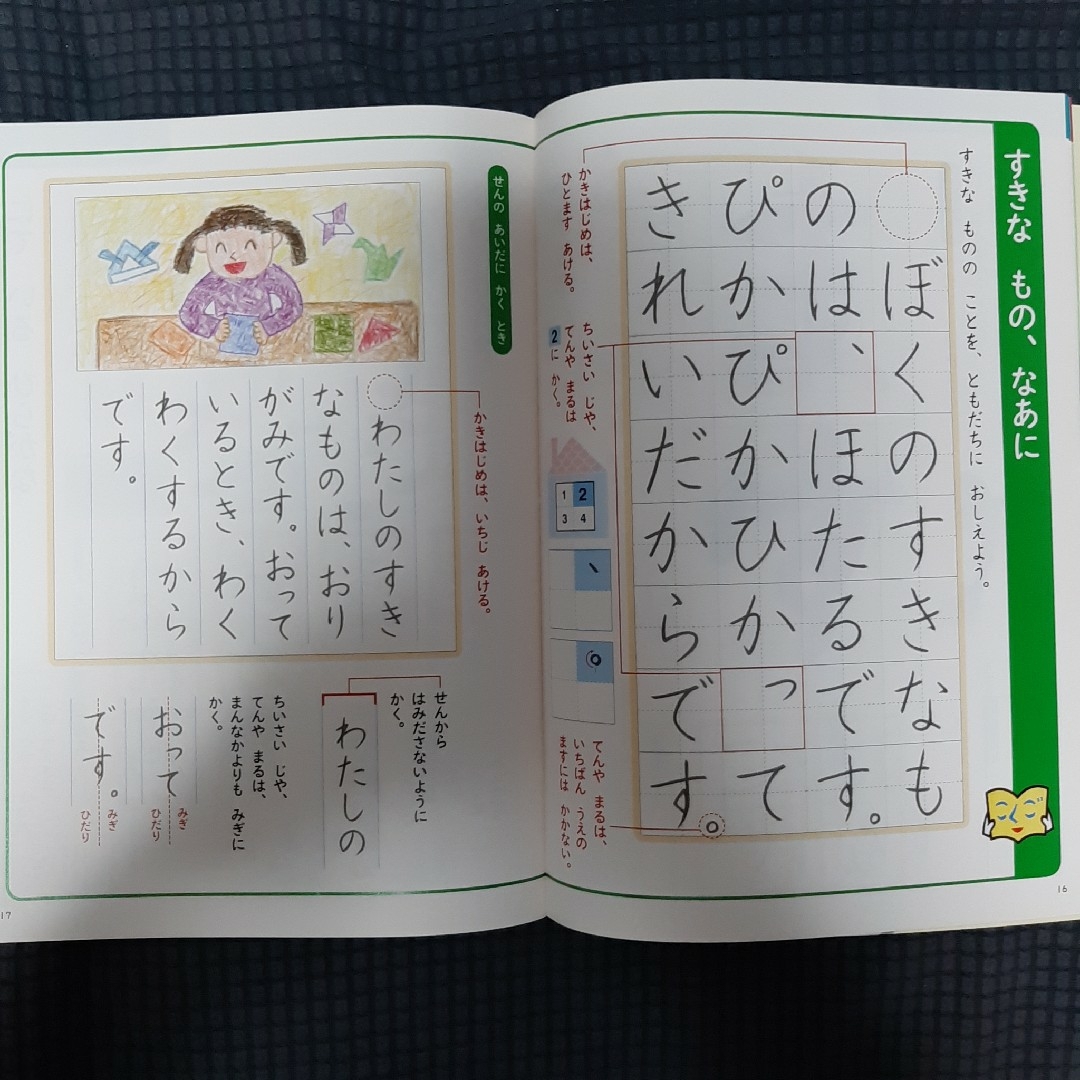 すきな もの、なあに
すきな ものの ことを、ともだちに おしえよう。
ぼくのすきなも
のは、ほたるです。
ぴかぴかひかって
きれいだからです。
かきはじめは、
ひとます あける。
ちいさい じや、
てんや まるは
2に かく。
1 2
3 4
、
。
てんや まるは、
いちばん うえの
ますには かかない。
こくご
16
せんの あいだに かく とき
かきはじめは、いちじ あける。
わたしのすき
なものは、おり
がみです。おって
いるとき、わく
わくするから
です。
せんから
はみださないように
かく。
わたしの
ちいさい じや、
てんや まるは、
まんなかよりも みぎに
かく。
おって
みぎ
ひだり
です。
みぎ
ひだり
17